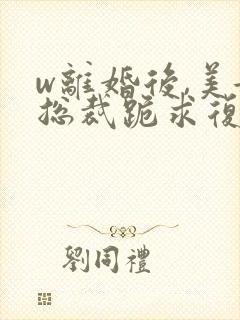 w離婚後,美
總裁跪求復
劉同禮